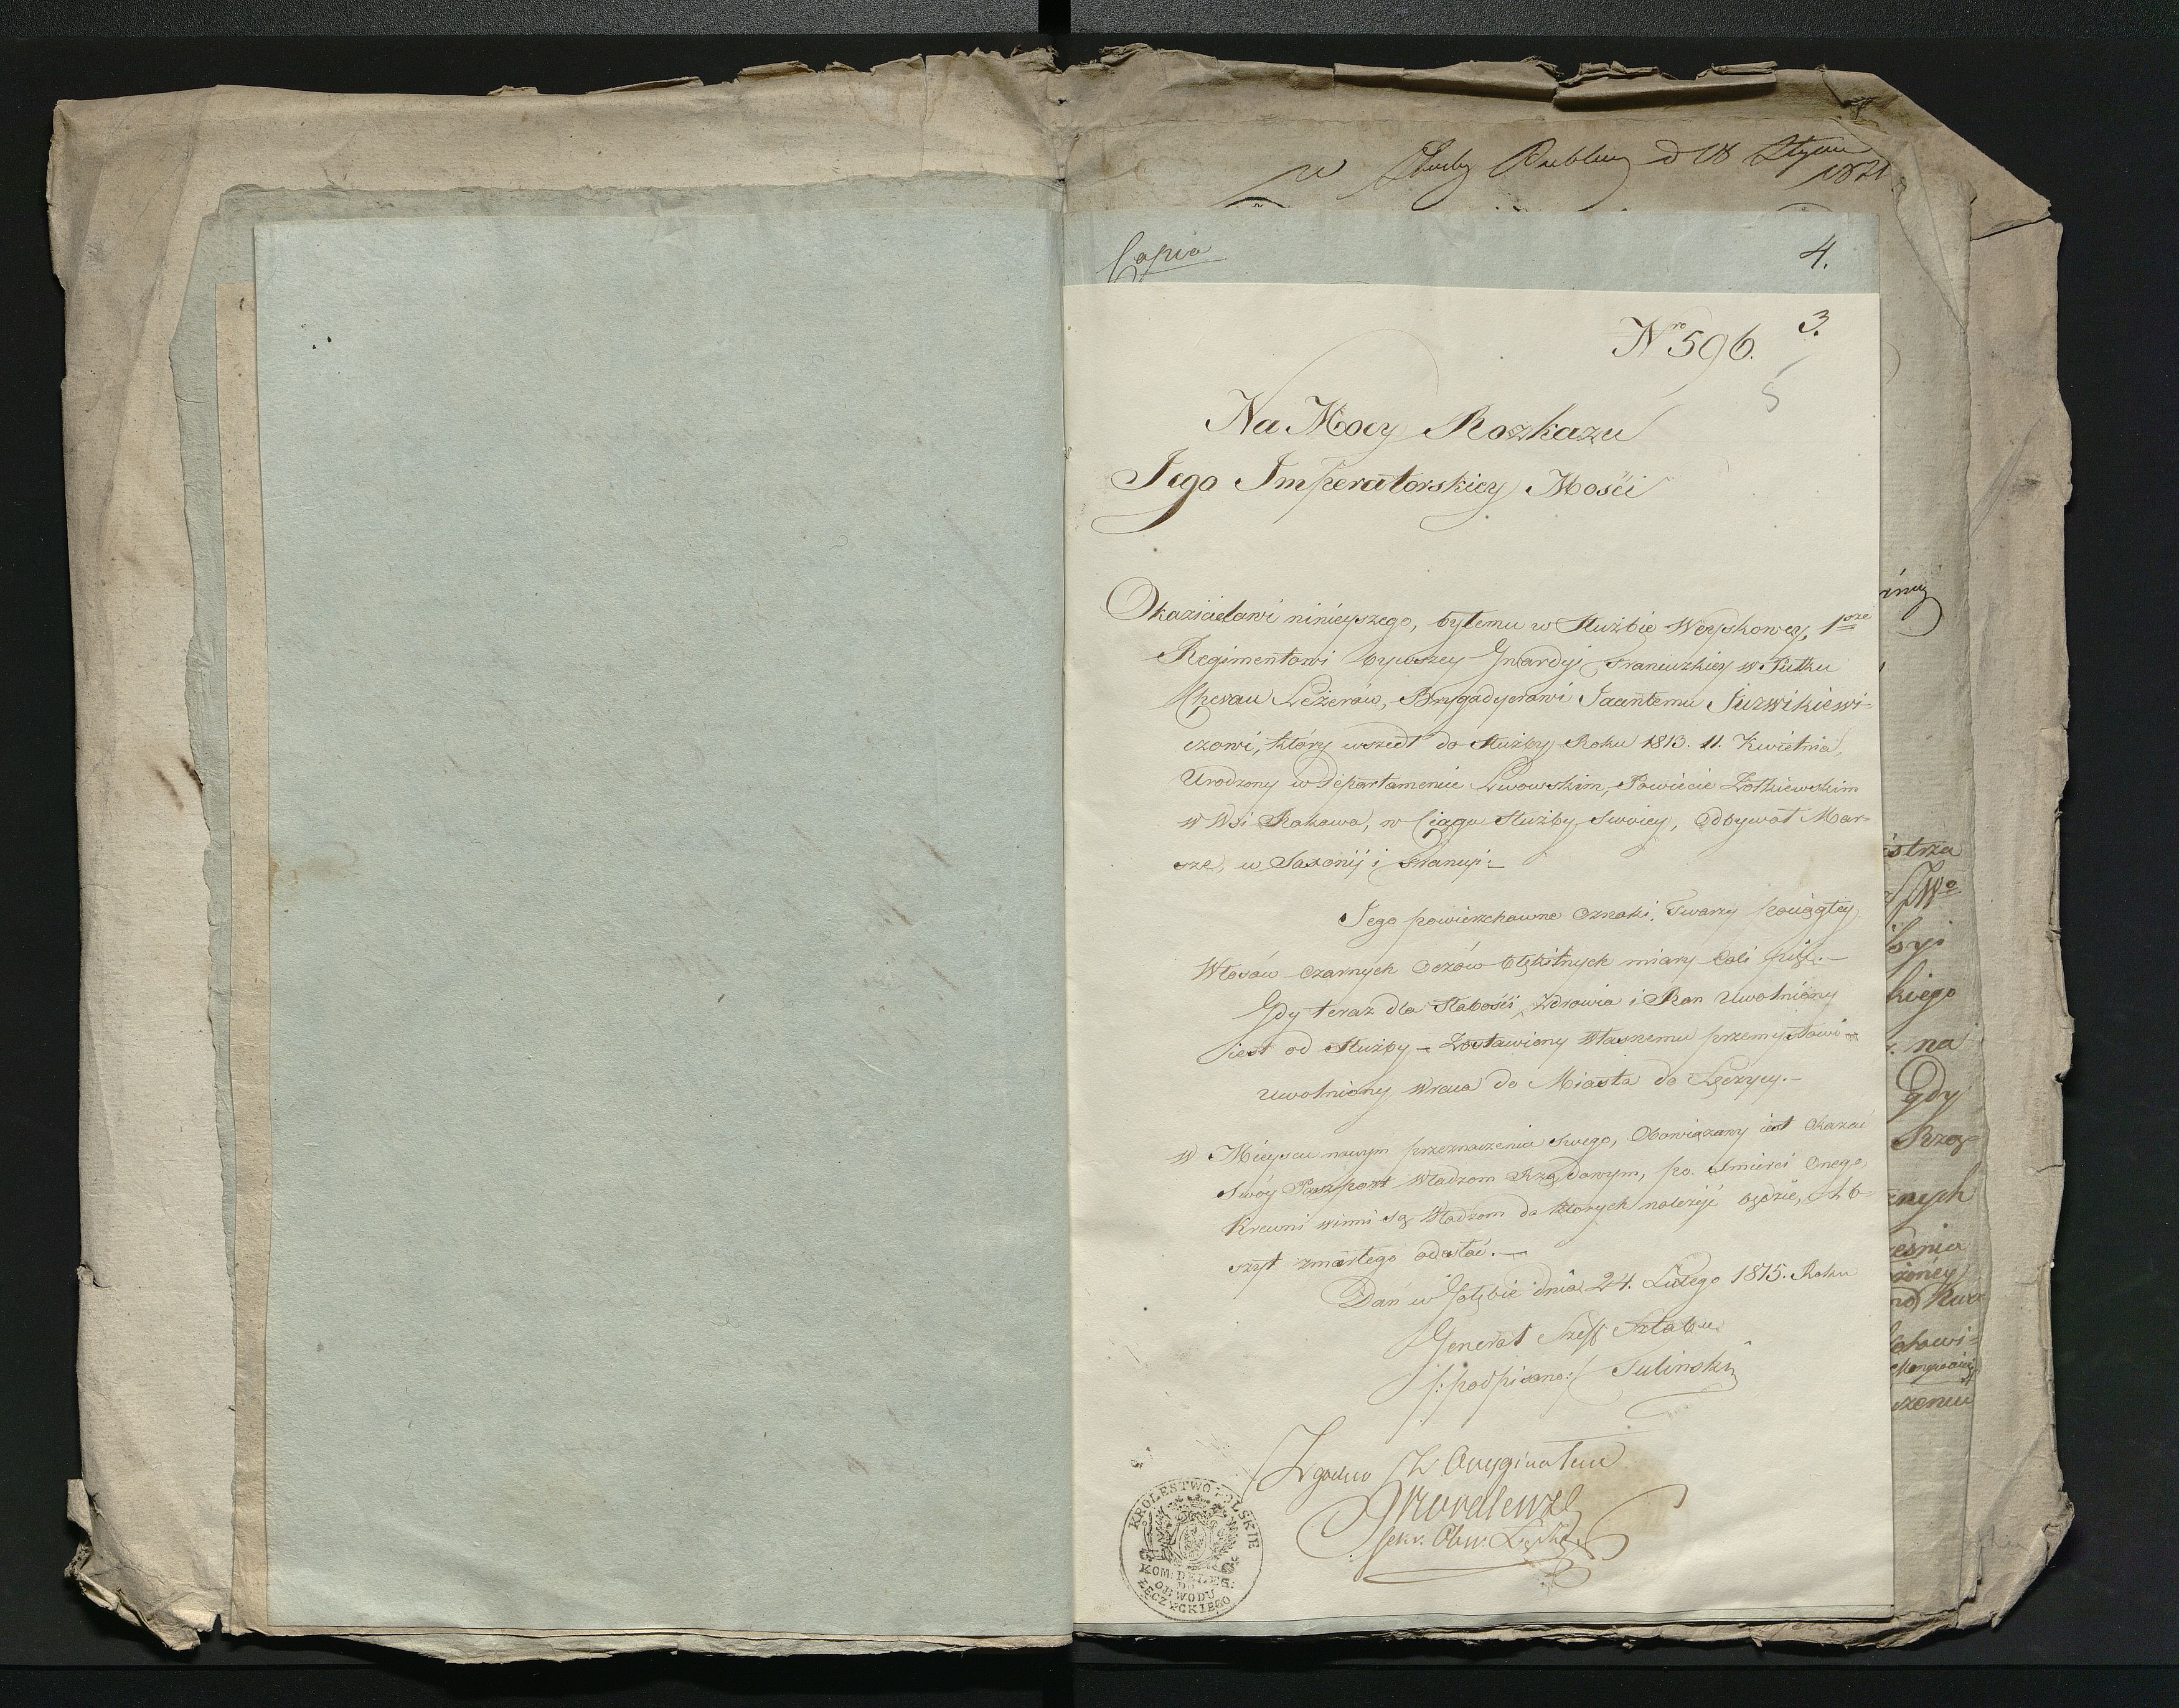 w Służby Publiczney d 18 Stycznia
1821
Copia
4.
3.
Nro 596.
5
Na Mocy Rozkazu
Jego Imperatorskiey Mośći
Okazicielowi ninieyszego, byłemu w Służbie Woyskowey, 1sze
Regimentowi bywszey Gwardyi Francuzkiey w Pułku
Chevau Leżerów, Brygadyerowi Jacentemu Juzwikiewi-
czowi, który wszedł do Służby Roku 1813. 11. Kwietnia,
Urodzony w Departamencie Lwowskim, Powiecie Żółkiewskim
w Wsi Rakowa, w Ciągu Służby Swoiey, odbywał Mar-
sze, w Saxonij i Francyi
Jego powierzchowne Oznaki, Twarzy pociągłey
Włosów Czarnych Oczów błękitnych miary Cali pięć.—
Gdy teraz dla Słabośći Zdrowia i Ran Uwolniony
iest od Służby — Zostawiony Własnemu przemysłowi —
uwolniony wraca do Miasta do Łęczycy.—
w Mieyscu nowym przeznaczenia Swego, Obowiązany iest Okazać
Swóy Paszport Władzom Rządowym, po Śmierci Onego
Krewni winni są Władzom do których należyć będzie, Ab-
szyt zmarłego odesłać.—
Dań w dnia 24. Lutego 1815. Roku
Generał Szeff Sztabu
/:podpisano:/ Tulinski
Zgodno z Oryginałem
Kowalewski
Sekr. Obw. Łęcki
KROLESTWO POLSKIE
KOM: DELEG:
DO
OBWODU
ŁĘCZYCKIEGO
istrza
kiego
na
Gdy